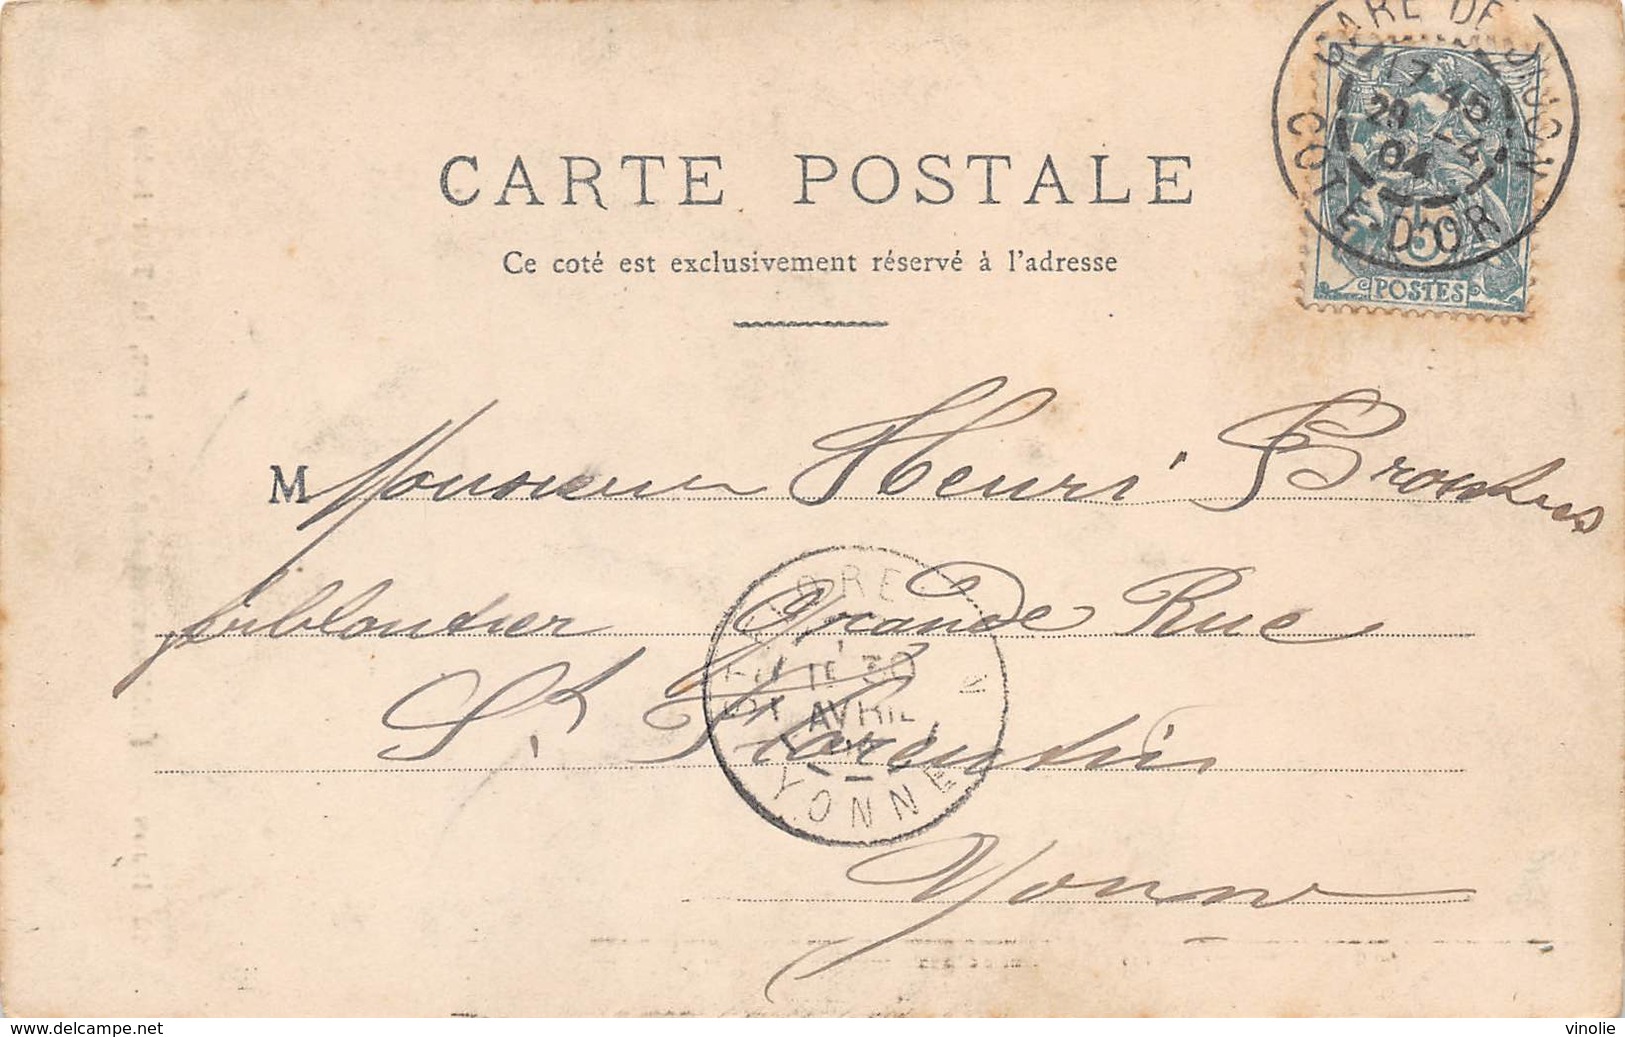 CARTE POSTALE
Ce coté est exclusivement réservé à l'adresse
GARE DE DIJON
17 45
29 -4
04
COTE-D'OR
5
POSTES
M Monsieur Henri
ferblantier Grande Rue
St Florentin
Yonne
30
AVRIL
YONNE
delcampe.net
vinolie